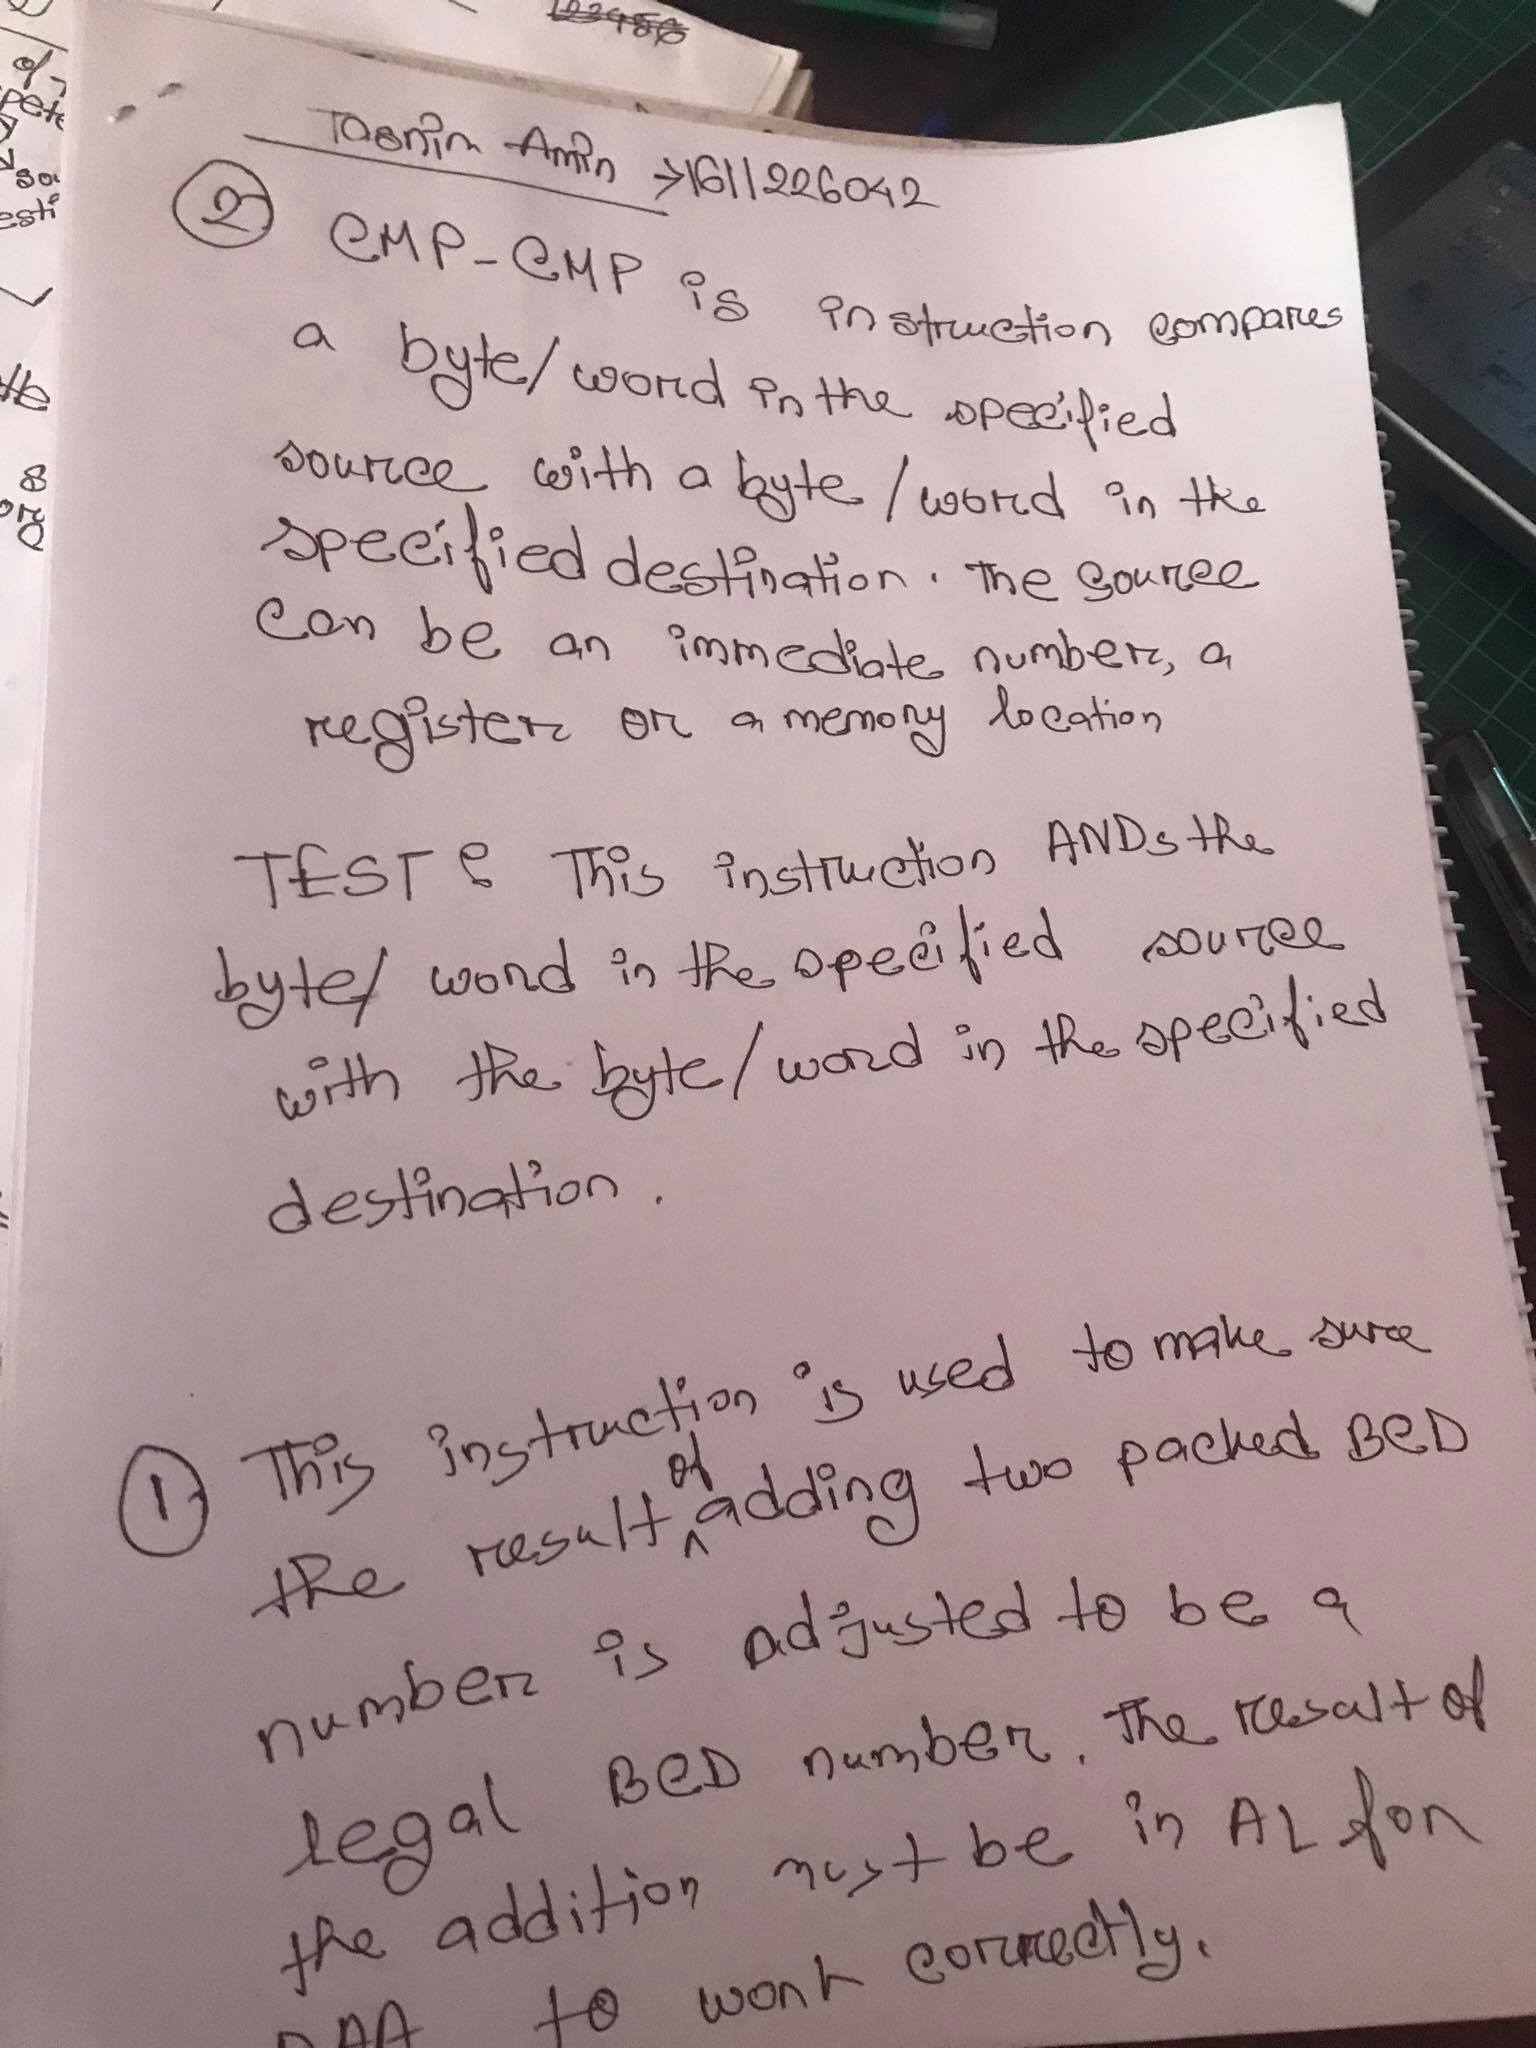 Tasnim Amin → 1611226042
② CMP - CMP is instruction compares
a byte/word in the specified
source with a byte/word in the
specified destination. The source
can be an immediate number, a
register or a memory location
TEST: This instruction ANDs the
byte/word in the specified source
with the byte/word in the specified
destination.
① This instruction is used to make sure
the result of adding two packed BCD
number is adjusted to be a
legal BCD number. The result of
the addition must be in AL for
DAA to work correctly.